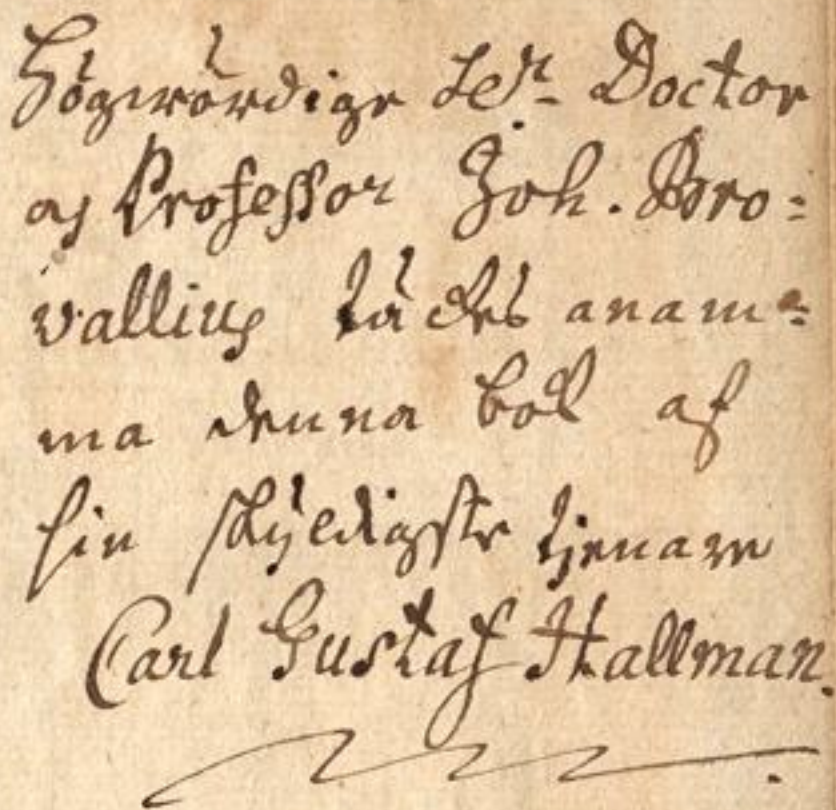 Högwördige Hr. Doctor
och Professor Joh. Bro=
vallius täckes anam=
ma denna bok af
sin skyldigste tjenare
Carl Gustaf Hallman.